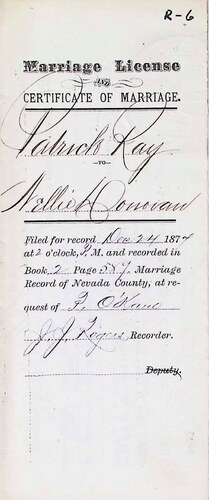 R-6
Marriage License
AND
CERTIFICATE OF MARRIAGE.
Patrick Ray
—TO—
Nellie Donovan
Filed for record Dec 24 1874
at 2 o'clock, P. M. and recorded in
Book 2 Page 587, Marriage
Record of Nevada County, at re-
quest of P. O'Kane
J. J. Rogers Recorder.
Deputy.